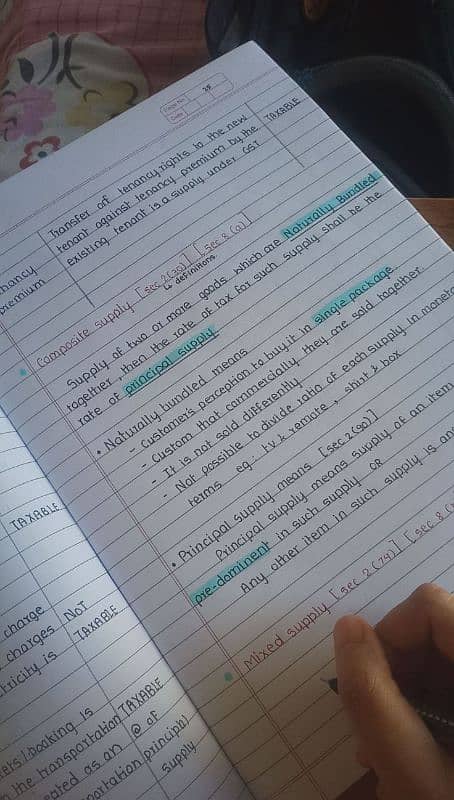 Page No. 28
Date
Transfer of tenancy rights to the new
tenant against tenancy premium by the
existing tenant is a supply under GST
TAXABLE
nancy
premium
Composite supply [sec 2(30)] [sec 8(a)]
definitions
Supply of two or more goods which are Naturally Bundled
together, then the rate of tax for such supply shall be the
rate of principal supply
• Naturally bundled means
- Customer's perception to buy it in single package
- Custom that commercially they are sold together
- It is not sold differently
- Not possible to divide ratio of each supply in moneta
terms eg: T.V & remote, shirt & box
• Principal supply means [sec 2(90)]
Principal supply means supply of an item
pre-dominent in such supply OR
Any other item in such supply is an
Mixed supply [sec 2(74)] [sec 8
TAXABLE
charge
charges
tricity is
NOT
TAXABLE
ers/booking is
the transportation
eated as an
portation principal
TAXABLE
@ of
supply